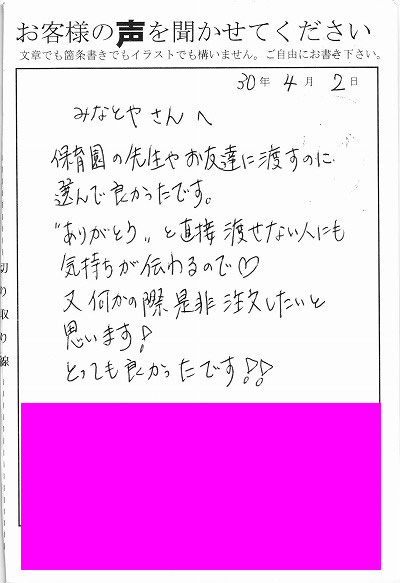 お客様の声を聞かせてください
文章でも箇条書きでもイラストでも構いません。ご自由にお書き下さい。
30年 4月 2日
みなとやさんへ
保育園の先生やお友達に渡すのに
選んで良かったです。
"ありがとう〃と直接渡せない人にも
気持ちが伝わるので♡
又何かの際是非注文したいと
思います!
とっても良かったです!!
切り取り線